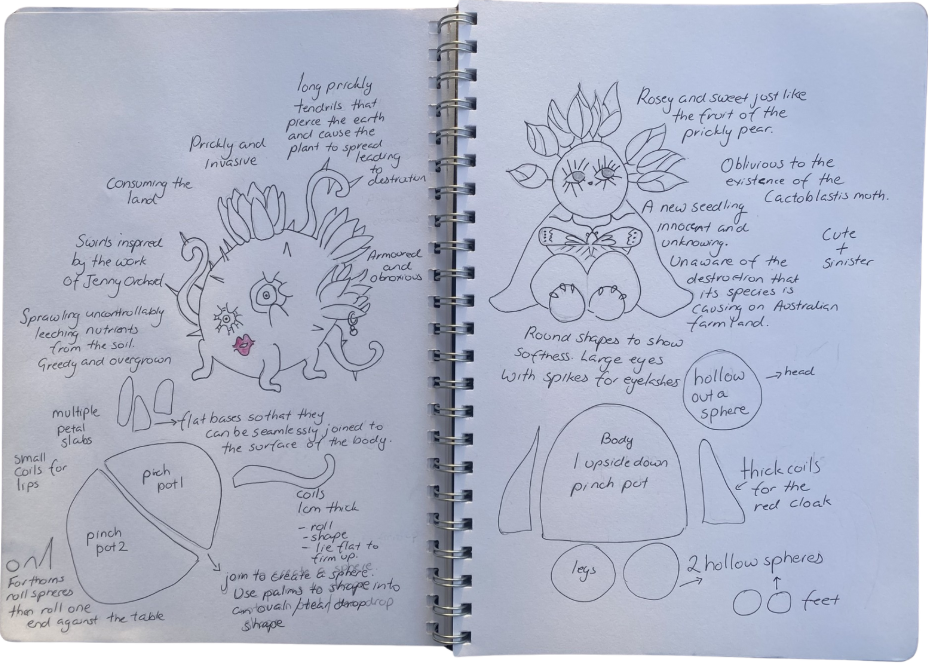 long prickly
tendrils that
pierce the earth
and cause the
plant to spread
leading
to
destruction
Prickly and
invasive
Consuming the
land
Swirls inspired
by the work
of Jenny Orchard
Armoured
and
obnoxious
Sprawling uncontrollably
leeching nutrients
from the soil.
Greedy and overgrown
multiple
petal
slabs
flat bases so that they
can be seamlessly joined to
the surface of the body.
small
coils for
lips
pich
pot 1
pinch
pot 2
coils
1cm thick
- roll
- shape
- lie flat to
firm up.
For thorns
roll spheres
then roll one
end against the table
join to create a sphere.
Use palms to shape into
an / tear drop
shape
Rosey and sweet just like
the fruit of the
prickly pear.
Oblivious to the
existence of the
Cactoblastis moth.
A new seedling
innocent and
unknowing.
Unaware of the
destruction that
its species is
causing on Australian
farmland.
Cute
+
Sinister
Round shapes to show
softness. Large eyes
with spikes for eyelashes
hollow
out a
sphere
head
Body
1 upside down
pinch pot
thick coils
for the
red cloak
legs
2 hollow spheres
feet